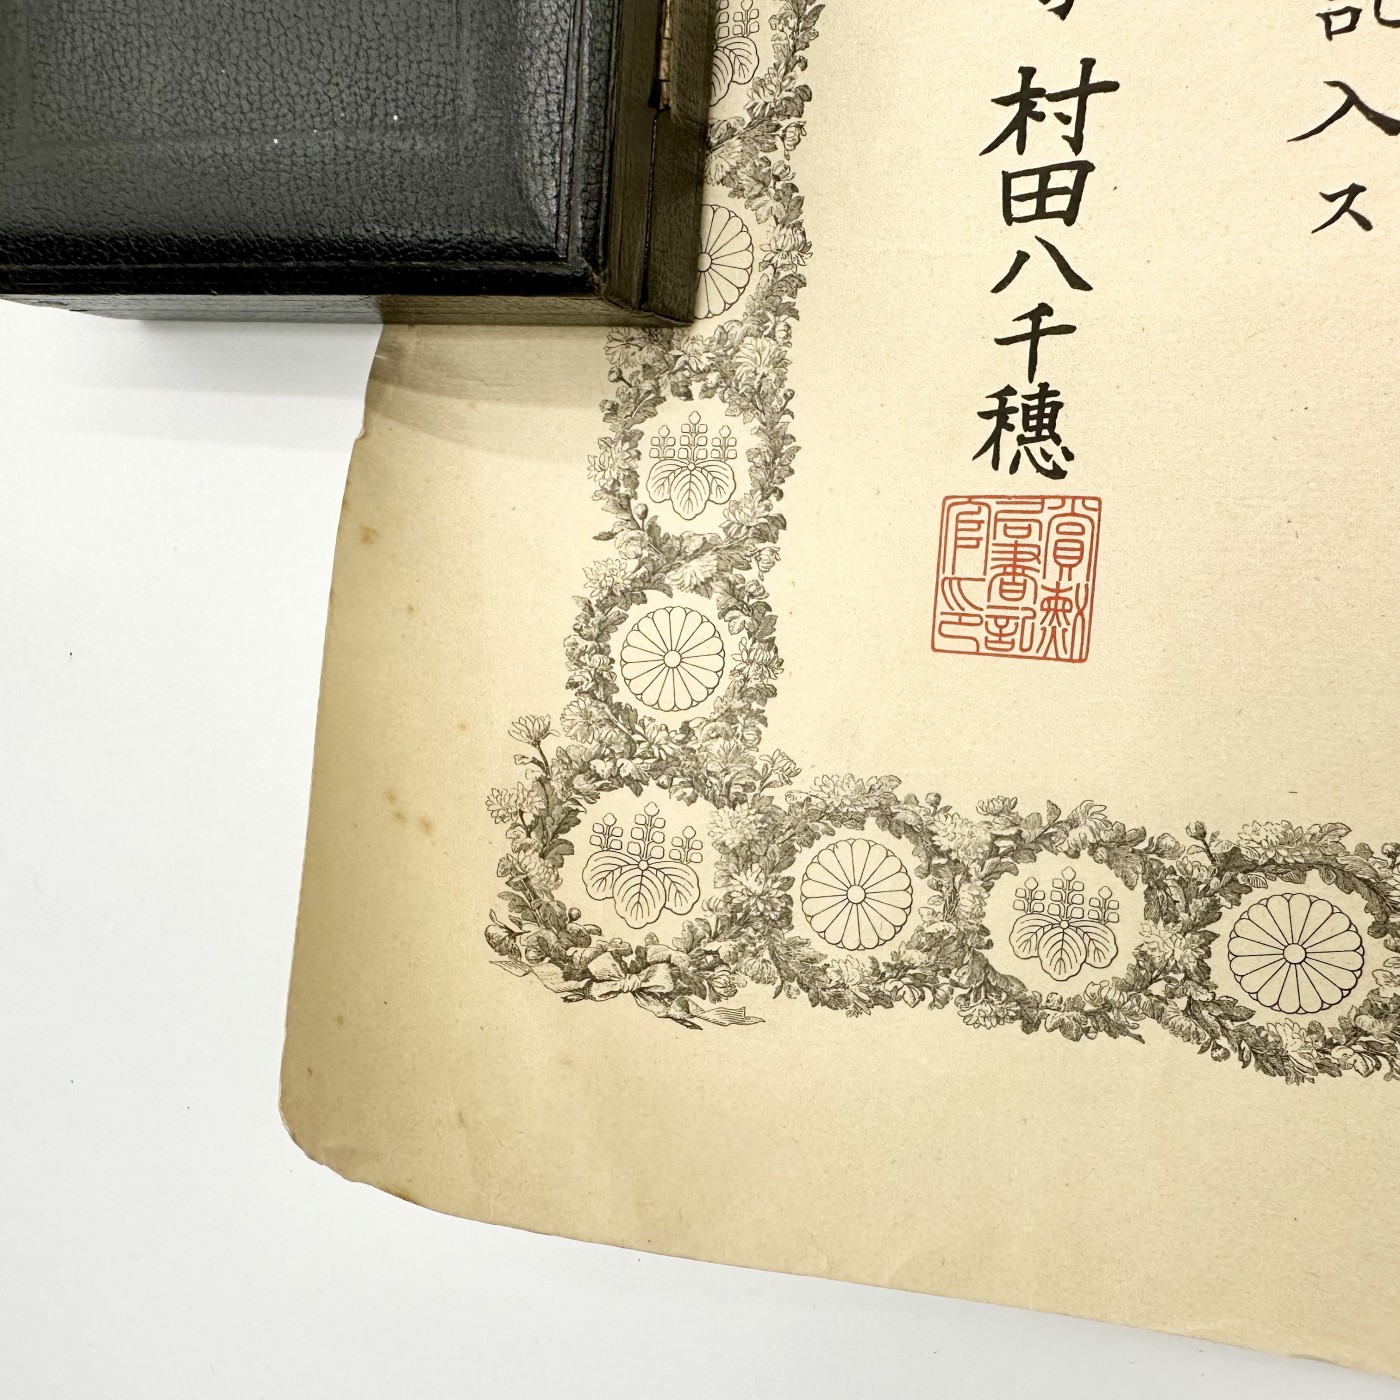 記入ス
村田八千穂
賞勲
局書記
官印